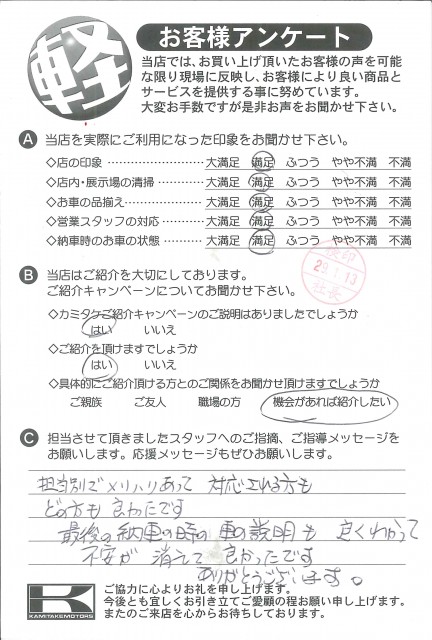 軽
お客様アンケート
当店では、お買い上げ頂いたお客様の声を可能
な限り現場に反映し、お客様により良い商品と
サービスを提供する事に努めています。
大変お手数ですが是非お声をお聞かせ下さい。
A 当店を実際にご利用になった印象をお聞かせ下さい。
◇店の印象 ………………… 大満足 満足 ふつう やや不満 不満
◇店内・展示場の清掃………… 大満足 満足 ふつう やや不満 不満
◇お車の品揃え……………… 大満足 満足 ふつう やや不満 不満
◇営業スタッフの対応………… 大満足 満足 ふつう やや不満 不満
◇納車時のお車の状態………… 大満足 満足 ふつう やや不満 不満
B 当店はご紹介を大切にしております。
ご紹介キャンペーンについてお聞かせ下さい。
29.1.13
社長
◇カミタケご紹介キャンペーンのご説明はありましたでしょうか
はい いいえ
◇ご紹介を頂けますでしょうか
はい いいえ
◇具体的にご紹介頂ける方とのご関係をお聞かせ頂けますでしょうか
ご親族 ご友人 職場の方 機会があれば紹介したい
C 担当させて頂きましたスタッフへのご指摘、ご指導メッセージを
お願いします。応援メッセージもぜひお願いします。
担当別でメリハリあって 対応される方も
どの方も良かったです
最後の納車の時の車の説明も良くわかって
不安が消えて良かったです
ありがとうございます。
K
KAMITAKEMOTORS
ご協力に心よりお礼を申し上げます。
今後とも宜しくお引き立てご愛顧の程お願い申し上げます。
またのご来店を心からお待ちしております。